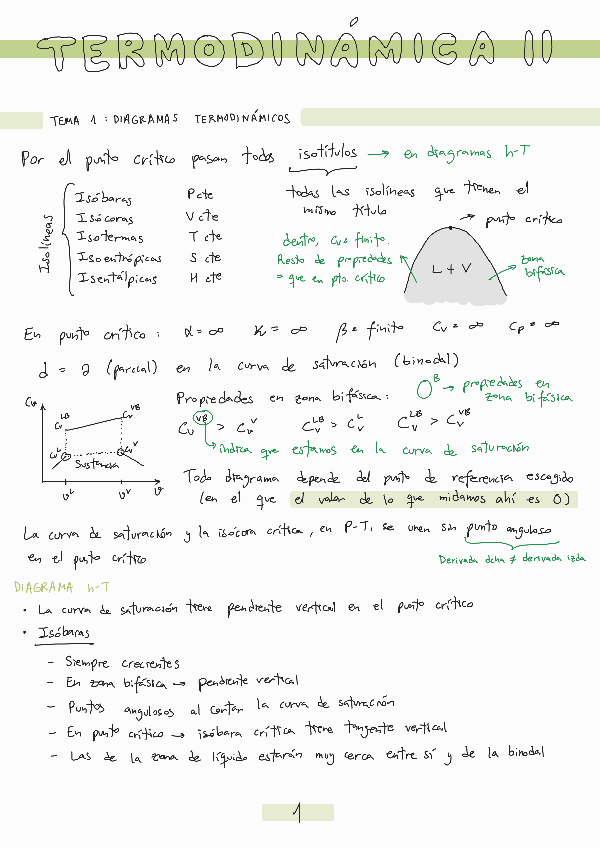 TERMODINÁMICA II
TEMA 1: DIAGRAMAS TERMODINÁMICOS
Por el punto crítico pasan todas isotítulos → en diagramas h-T
todas las isolíneas que tienen el
mismo título
Isolíneas
Isóbaras P cte
Isócoras V cte
Isotermas T cte
Isoentrópicas S cte
Isentálpicas H cte
dentro, Cv finito.
Resto de propiedades
= que en pto. crítico
punto crítico
L + V
zona
bifásica
En punto crítico: α = ∞ κ = ∞ β = finito Cv = ∞ Cp = ∞
d = ∂ (parcial) en la curva de saturación (binodal)
Propiedades en zona bifásica: O^B → propiedades en
zona bifásica
Cv^VB > Cv^V Cv^LB > Cv^L Cv^LB > Cv^VB
indica que estamos en la curva de saturación
Cv
Cv^LB
Cv^VB
Cv^L
Cv^V
Sustancia
v^L
v^V
v
Todo diagrama depende del punto de referencia escogido
(en el que el valor de lo que midamos ahí es 0)
La curva de saturación y la isócora crítica, en P-T, se unen sin punto anguloso
en el punto crítico
Derivada dcha ≠ derivada izda
DIAGRAMA h-T
• La curva de saturación tiene pendiente vertical en el punto crítico
• Isóbaras
- Siempre crecientes
- En zona bifásica → pendiente vertical
- Puntos angulosos al cortar la curva de saturación
- En punto crítico → isóbara crítica tiene tangente vertical
- Las de la zona de líquido estarán muy cerca entre sí y de la binodal
1